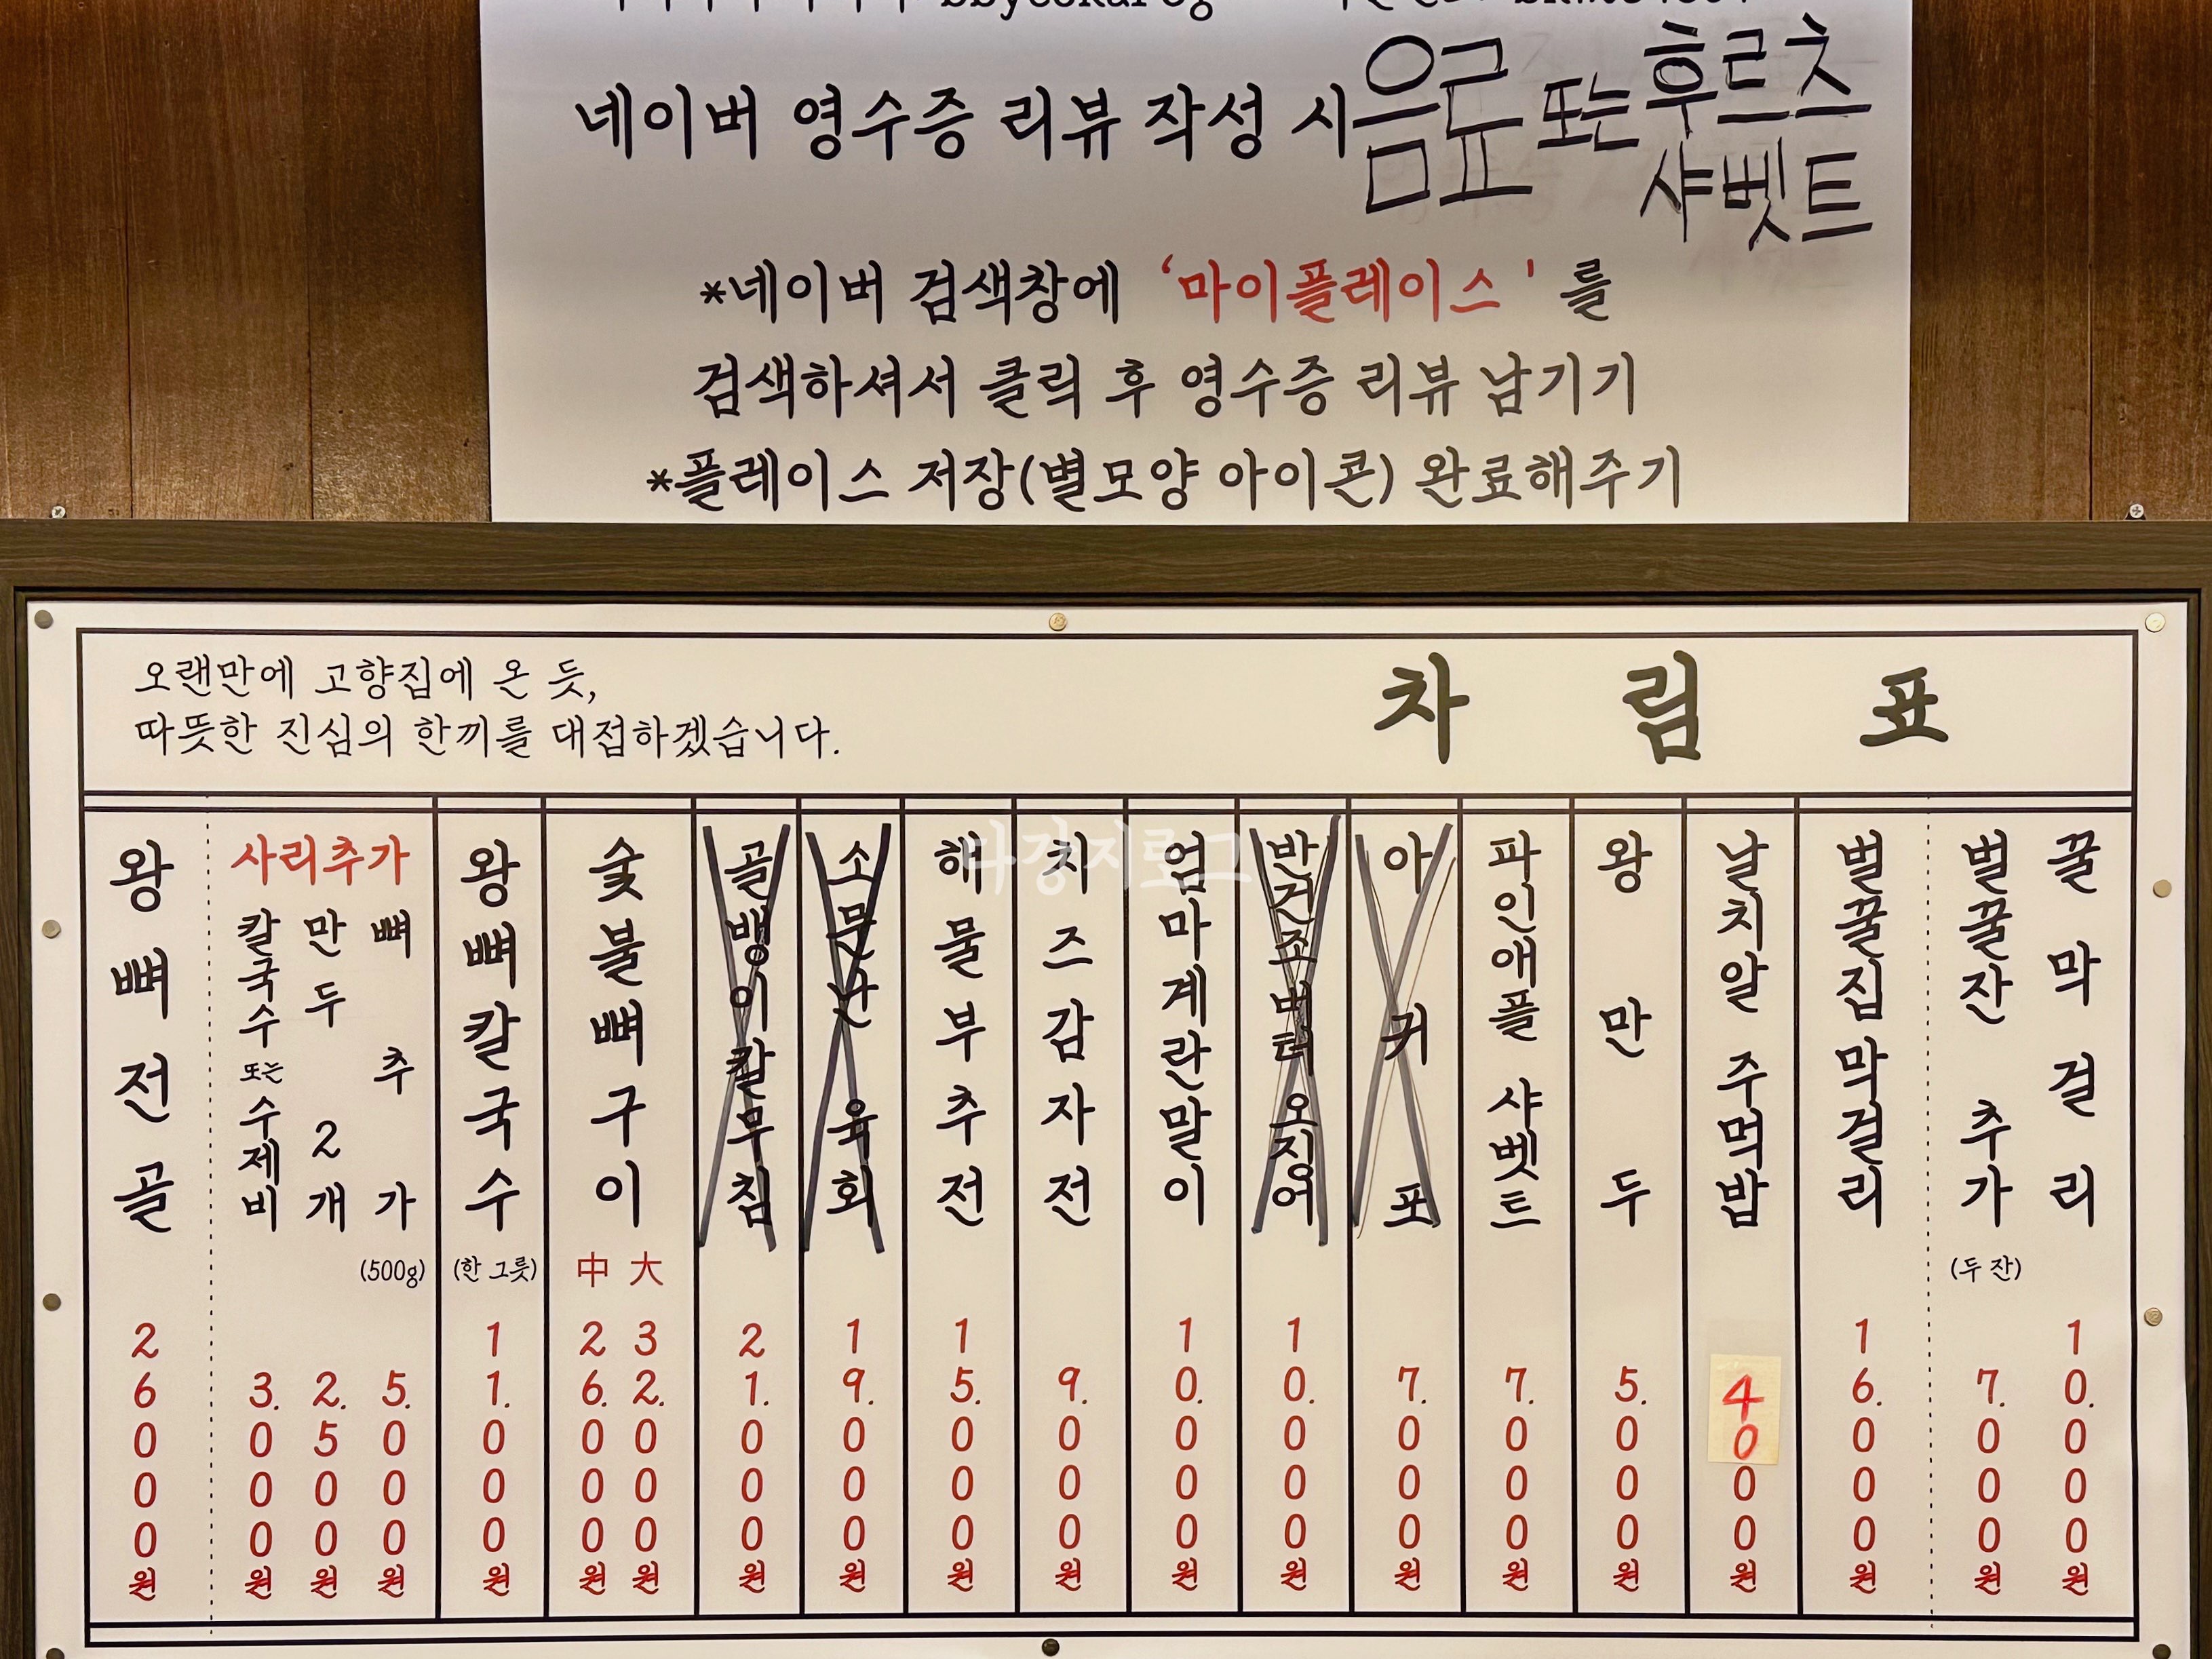 네이버 영수증 리뷰 작성 시 음료 또는 후르츠
샤벳트
*네이버 검색창에 '마이플레이스'를
검색하셔서 클릭 후 영수증 리뷰 남기기
*플레이스 저장(별모양 아이콘) 완료해주기
오랜만에 고향집에 온 듯,
따뜻한 진심의 한끼를 대접하겠습니다.
차림표
왕뼈전골 26000원
사리추가
칼국수 또는 수제비 3.000원
만두 2개 2.500원
뼈추가 (500g) 5.000원
왕뼈칼국수 (한 그릇) 11.000원
숯불뼈구이 中 26.000원 大 32.000원
골뱅이칼무침 21.000원
소문난 육회 19.000원
해물부추전 15.000원
치즈감자전 9.000원
엄마계란말이 10.000원
반건조버터 오징어 10.000원
아귀포 7.000원
파인애플 샤벳트 7.000원
왕만두 5.000원
날치알 주먹밥 4000원
벌꿀집막걸리 16.000원
벌꿀잔 추가 (두 잔) 7.000원
꿀막걸리 10.000원
다강지로그